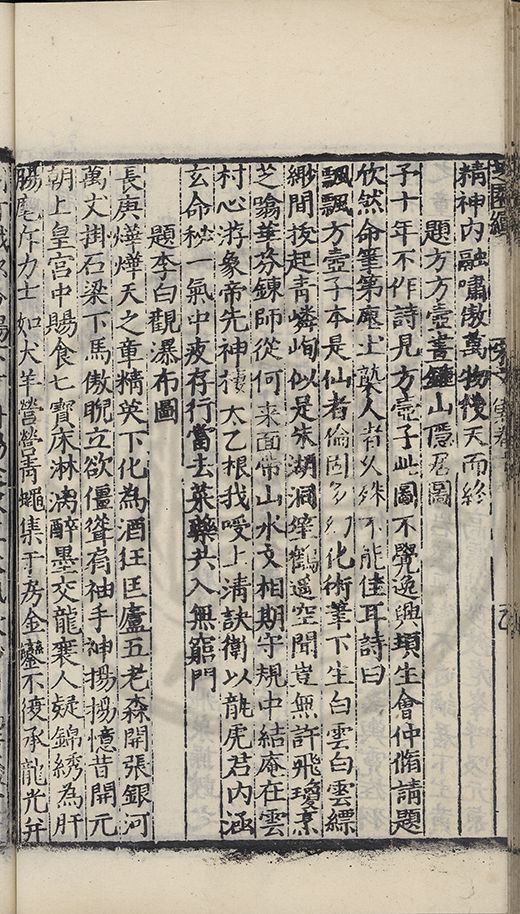 精神內融嘯傲萬物後天而終
題方方壺畫鍾山隱居圖
予十年不作詩見方壺子此圖不覺逸興頓生會仲脩請題
欣然命筆第塵土埶人者久殊不能佳耳詩曰
飄飄方壺子本是仙者倫固多幻化術筆下生白雲白雲縹
緲間擁起青嶙峋似是朱湖洞縹鶴遥空聞豈無許飛瓊烹
芝噏華芬鍊師從何來面帶山水文相期守規中結庵在雲
村心游象帝先神棲太乙根我受上清訣衛以龍虎君内涵
玄命秘一氣中夜存行當去菜藥共入無竆門
題李白觀瀑布圖
長庚燁燁天之章精英下化為酒狂匡廬五老森開張銀河
萬丈掛石梁下馬傲睨立欲僵聳肩袖手神揚揚憶昔開元
朝上皇宫中賜食七寶床淋漓醉墨交龍襄人疑錦綉為肝
腸麾斥力士如犬羊營營青蠅集于房金鑾不復承龍光并